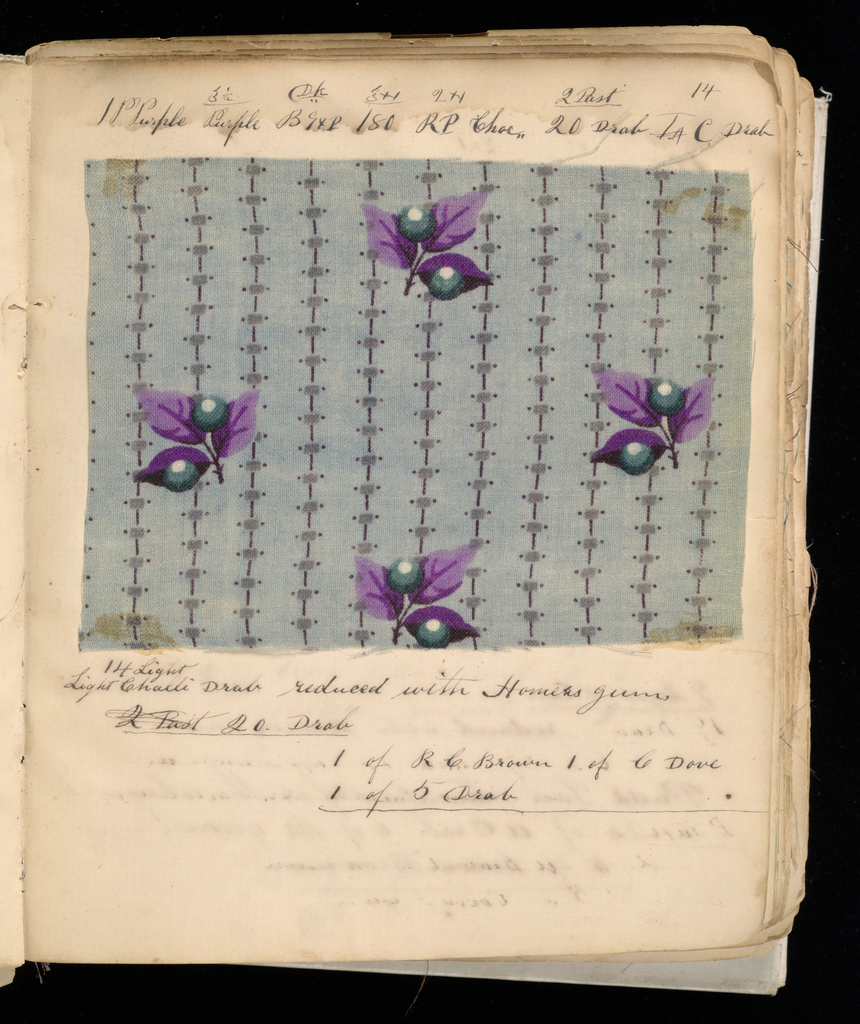 DK 3+1 2+1 2 Past 14
1 P Purple Purple B9XP 180 RP Choc,, 20 Drab C Drab
14 Light
Light Challi Drab reduced with Homers gum
2 Past 20. Drab
1 of R C. Brown 1. of C Dove
1 of 5 Drab